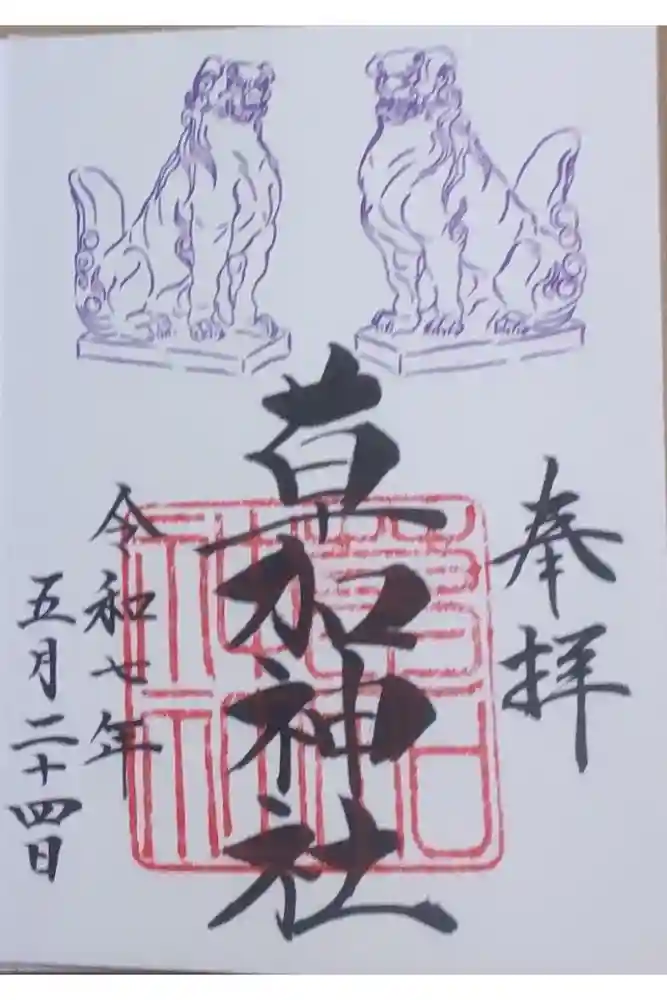 奉拝
草加神社
令和七年
五月二十四日